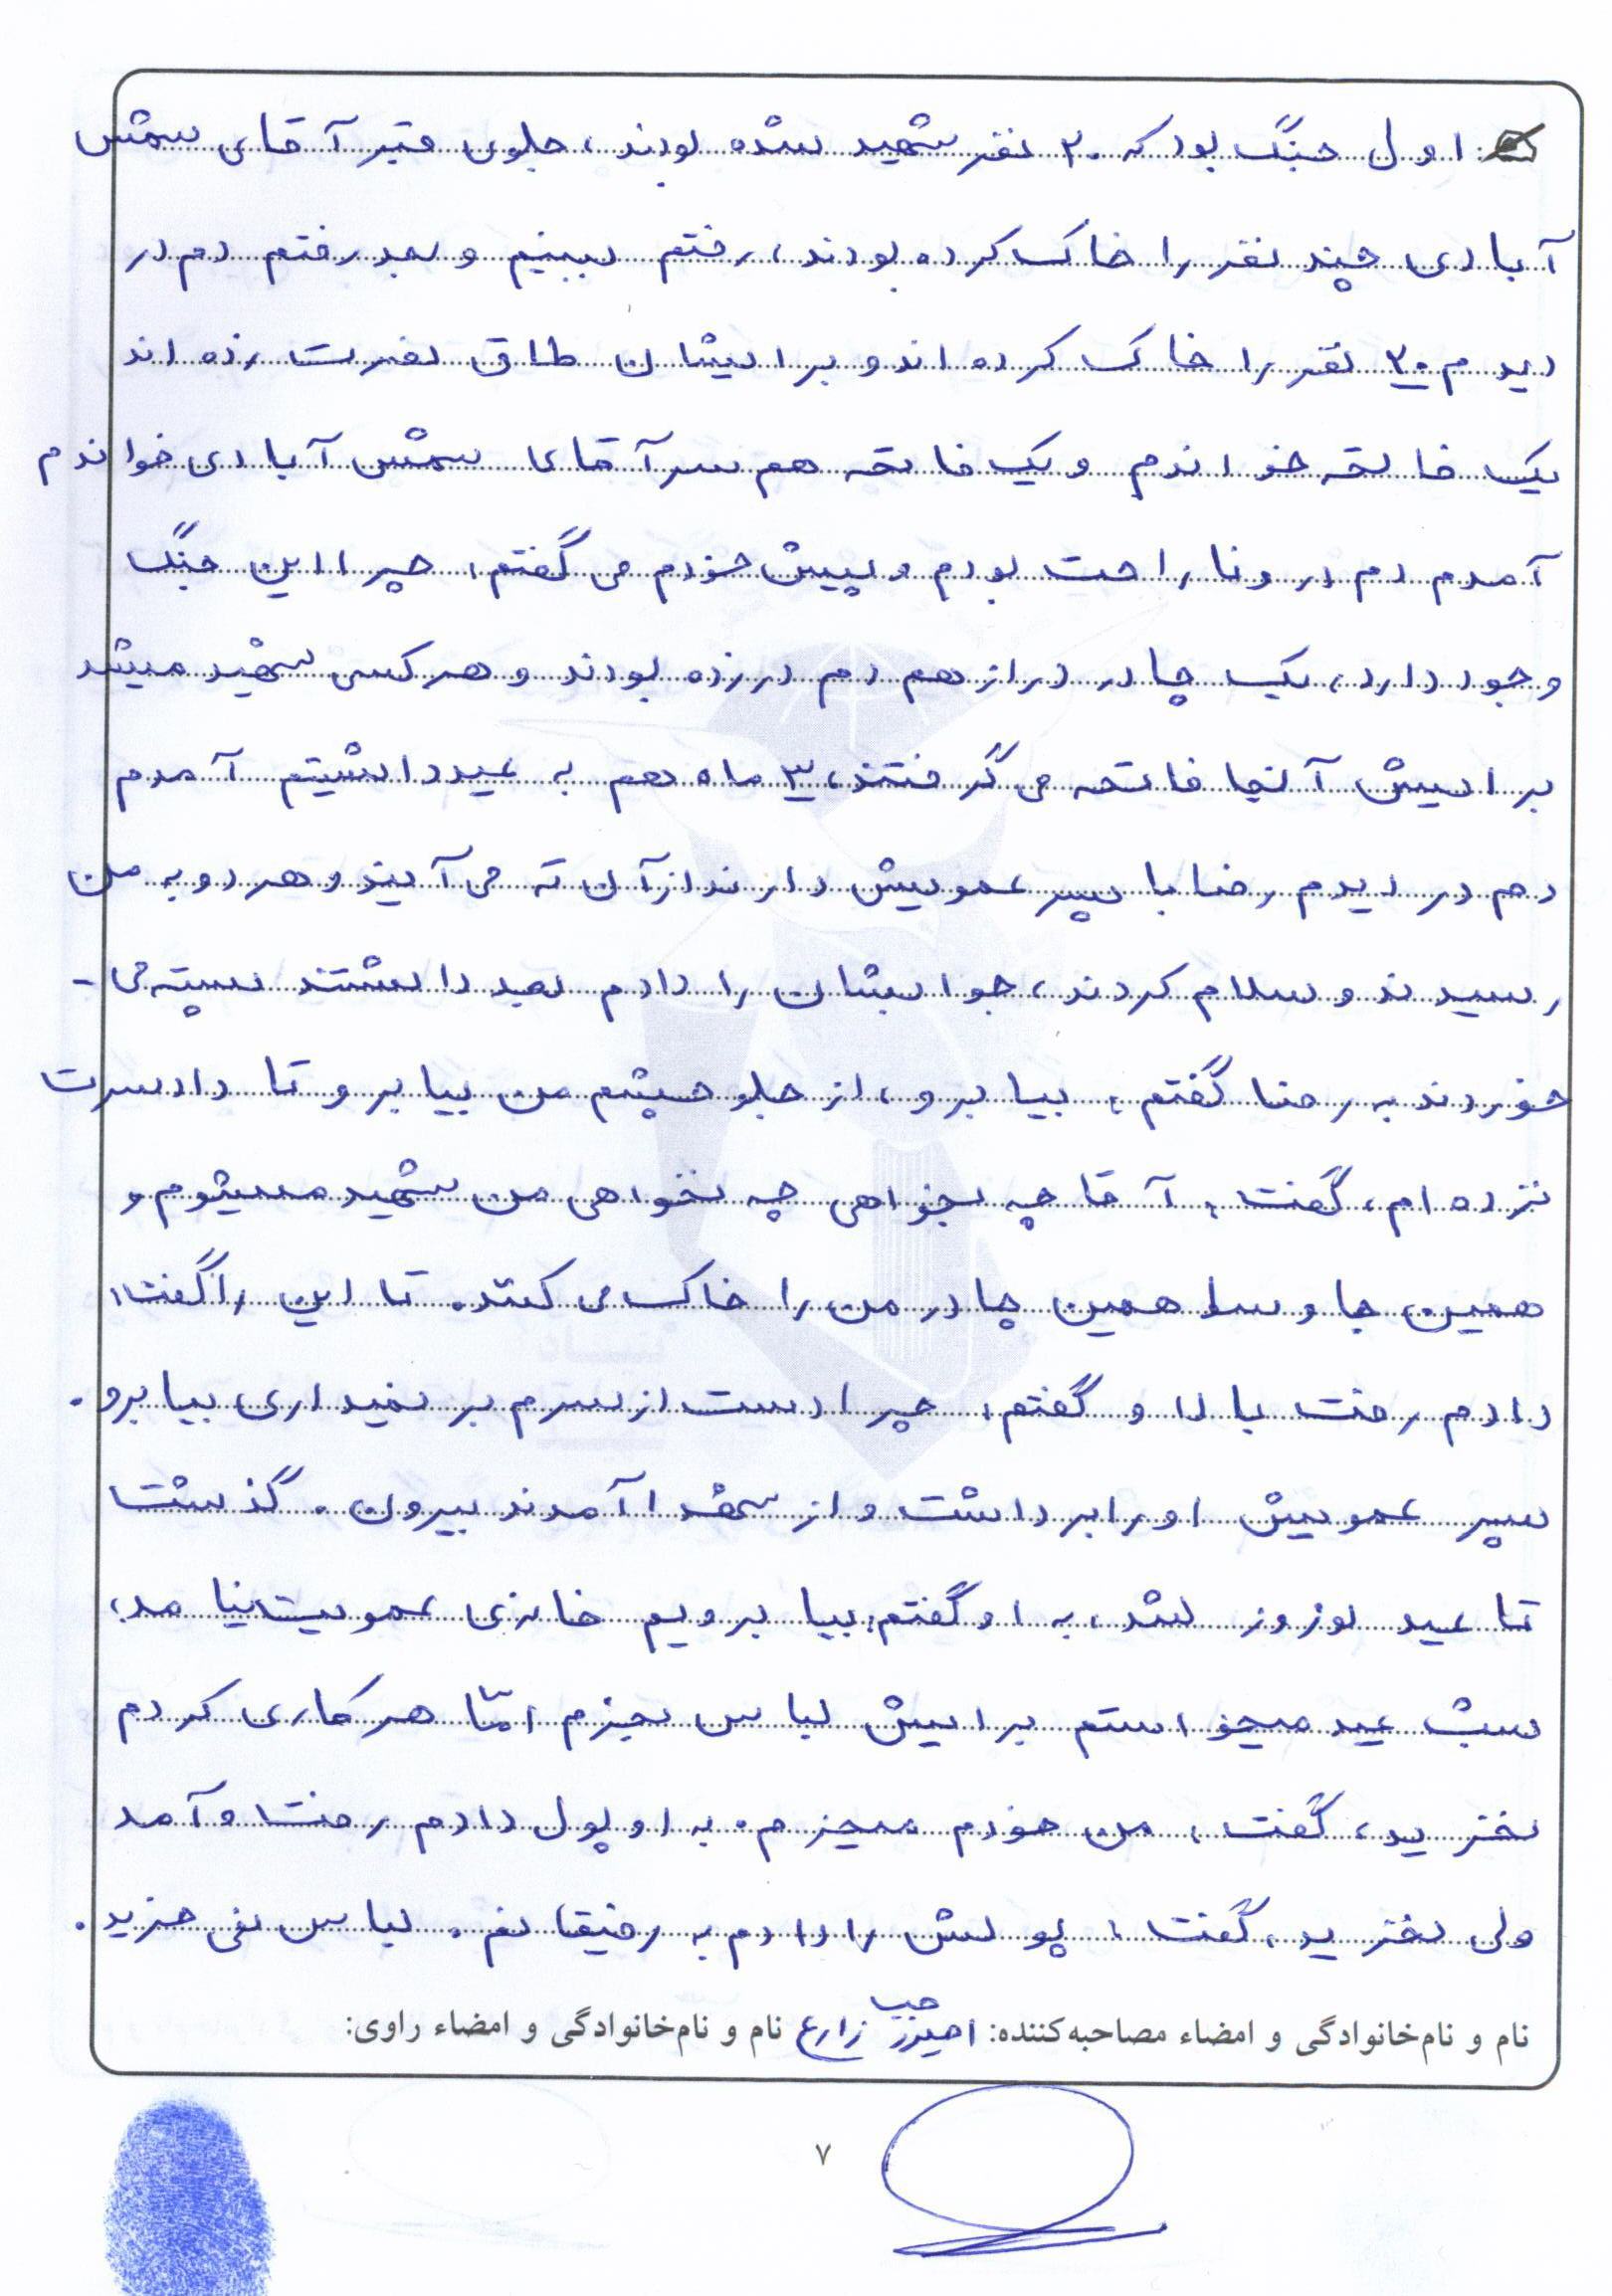 اول جنگ بود که ۲۰ نفر شهید شده بودند، جلوی قبر آقای شمش
آبادی چند نفر را خاک کرده بودند، رفتم ببینم و بعد رفتم دم در
دیدم ۲۰ نفر را خاک کرده اند و برایشان طاق نصرت زده اند
یک فاتحه خواندم و یک فاتحه هم سر آقای شمش آبادی خواندم
آمدم دم در و ناراحت بودم و پیش خودم می گفتم: چرا این جنگ
وجود دارد، یک چادر دراز هم دم در زده بودند و هر کسی شهید میشد
برایش آنجا فاتحه می گرفتند، ۳ ماه هم به عید داشتیم آمدم
دم در دیدم رضا با پسر عمویش دارند از آن ته می آیند و هر دو به من
رسیدند و سلام کردند، جوابشان را دادم بعد داشتند پسته می -
خوردند به رضا گفتم: بیا برو، از جلو چشم من بیا برو تا داد سرت
نزده ام، گفت: آقا چه بخواهی چه نخواهی من شهید میشوم و
همین جا وسط همین چادر من را خاک می کنند. تا این را گفت،
دادم رفت بالا و گفتم: چرا دست از سرم بر نمیداری بیا برو.
پسر عمویش او را برداشت و از شهدا آمدند بیرون. گذشت
تا عید نوروز شد، به او گفتم: بیا برویم خانه‌ی عمویت نیامد،
شب عید میخواستم برایش لباس بخرم امّا هر کاری کردم
نخرید، گفت: من خودم میخرم. به او پول دادم رفت و آمد
ولی نخرید، گفت: پولش را دادم به رفیقانم. لباس نمی خرید.
نام و نام‌خانوادگی و امضاء مصاحبه‌کننده: زارع نام و نام‌خانوادگی و امضاء راوی:
۷